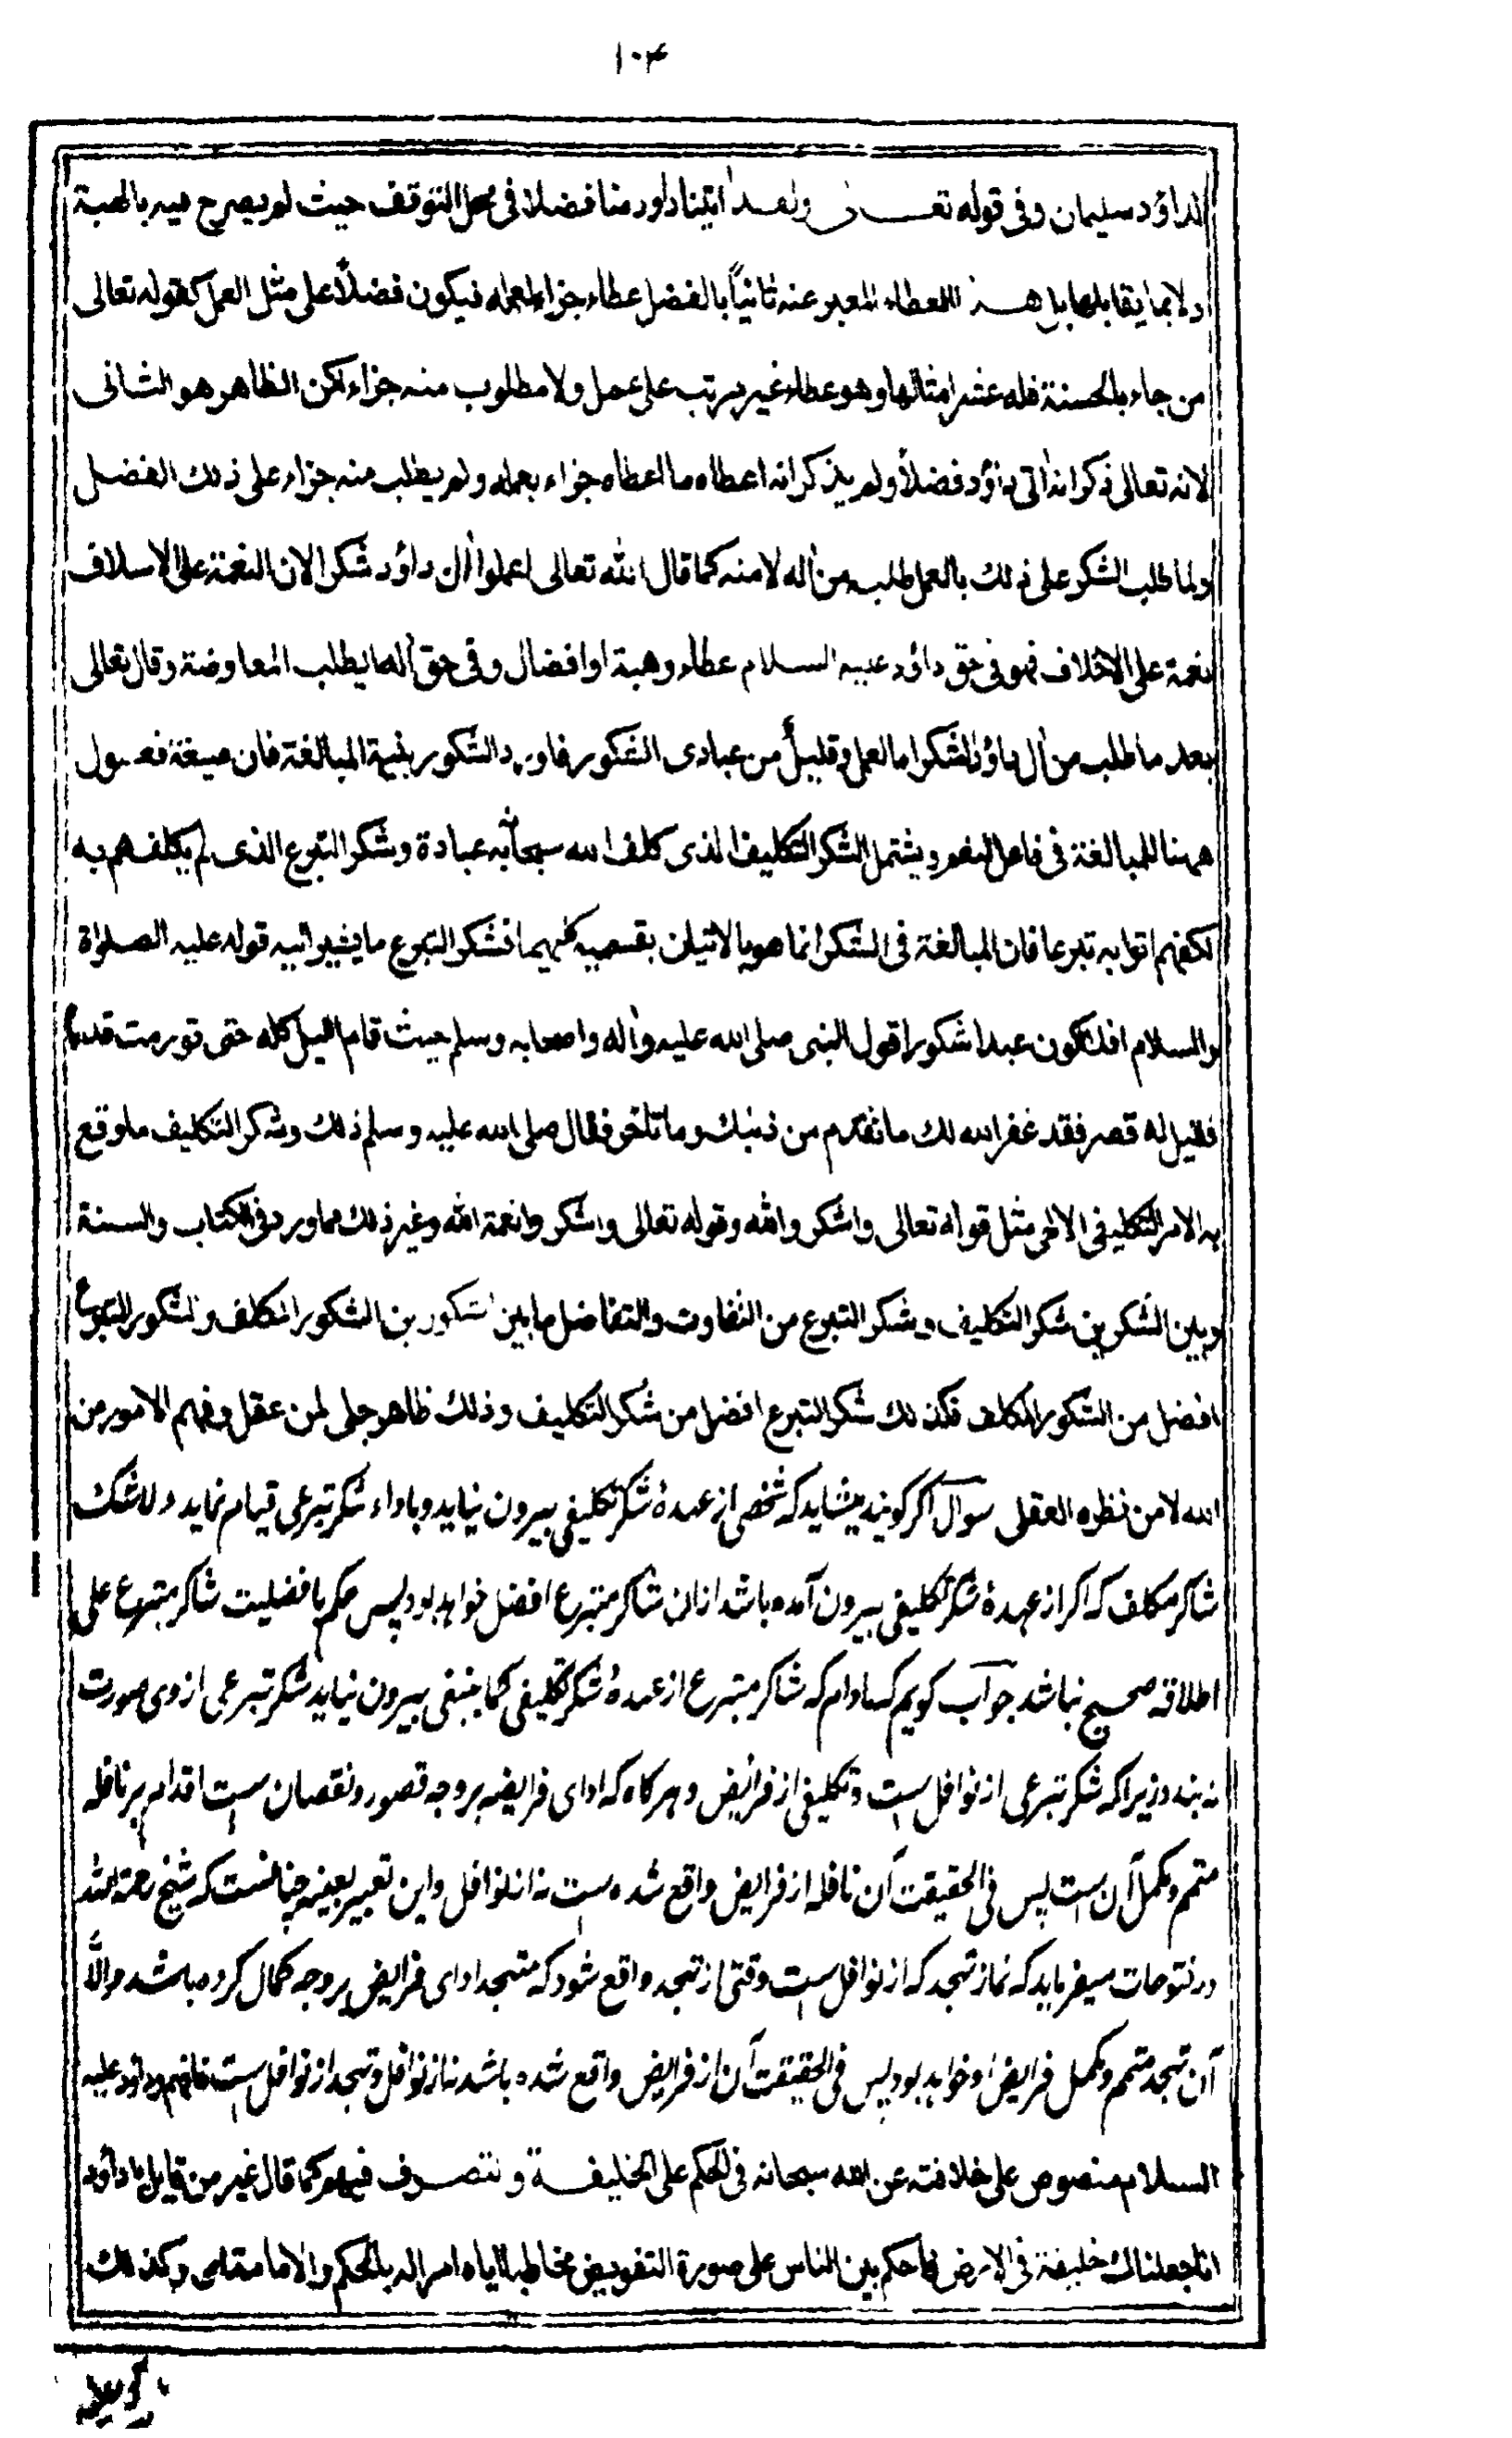 ۱۰۴
لداؤد سليمان وفى قوله تعالى ولقد اٰتينا داود منا فضلا فى محل التوقف حيث لم يصرح فيه بالهبة
ولا بما يقابلها بل هذا العطاء المعبر عنه ثانياً بالفضل عطاء جزاء لعمله فيكون فضلاً على مثل العمل كقوله تعالى
من جاء بالحسنة فله عشر امثالها وهو عطاء غير مرتب على عمل ولا مطلوب منه جزاء لكن الظاهر هو الثانى
لانه تعالى ذكر انه اٰتى داؤد فضلاً ولم يذكر انه اعطاه ما اعطاه جزاء بعمله ولم يطلب منه جزاء على ذلك الفضل
ولما طلب الشكر على ذلك بالعمل طلبه من اٰله لا منه كما قال الله تعالى اعملوا اٰل داؤد شكرا لان النعمة على الاسلاف
نعمة على الاخلاف فهو فى حق داؤد عليه السلام عطاء وهبة او افضال وفى حق اٰله ما يطلب المعاوضة وقال تعالى
بعد ما طلب من اٰل داؤد الشكر بالعمل وقليلٌ من عبادى الشكور فاورد الشكور بنية المبالغة فان صيغة فعول
ههنا للمبالغة فى فاعل الفعل ويشتمل الشكر التكليف الذى كلف الله سبحانه به عباده وشكر التبرع الذى لم يكلفهم به
لكنهم اتوا به تبرعا فان المبالغة فى الشكر انما هو بالاتيان بقسميه كليهما فشكر التبرع ما يشير اليه قوله عليه الصلواة
والسلام افلا اكون عبدا شكورا قول النبى صلى الله عليه واٰله واصحابه وسلم حيث قام الليل كله حتى تورمت قدماه
فقيل له قصر فقد غفر الله لك ما تقدم من ذنبك وما تاخر فقال صلى الله عليه وسلم ذلك وشكر التكليف ما وقع
به الامر التكليفى الالهى مثل قوله تعالى واشكروا لله وقوله تعالى واشكروا نعمة الله وغير ذلك مما ورد فى الكتاب والسنة
وبين الشكرين شكر التكليف وشكر التبرع من التفاوت والتفاضل ما بين الشكورين الشكور المكلف والشكور المتبرع
افضل من الشكور المكلف فكذلك شكر التبرع افضل من شكر التكليف وذلك ظاهر جلى لمن عقل وفهم الامور من
الله لا من نظره العقلى سوال اگر گويند ميشايد كه شخصى از عهدهٔ شكر تكليفى بيرون نيايد وباداء شكر تبرعى قيام نمايد ولا شك
شاكر مكلف كه اگر از عهدهٔ شكر تكليفى بيرون آمده باشد ازان شاكر متبرع افضل خواهد بود پس حكم با فضليت شاكر متبرع على
اطلاقه صحيح نباشد جواب گويم كه مادام كه شاكر متبرع از عهدهٔ شكر تكليفى كما ينبغى بيرون نيايد شكر تبرعى ازوى صورت
نه بندد زيرا كه شكر تبرعى از نوافل ست وتكليفى از فرائض وهر گاه كه اداى فريضه بر وجه قصور ونقصان ست اقدام بر نافله
متمم ومكمل آن ست پس فى الحقيقت آن نافله از فرايض واقع شده ست نه از نوافل واين تعبير بعينه چنانست كه شيخ رحمة الله
در فتوحات ميفرمايد كه نماز تهجد كه از نوافل ست وقتى از تهجد واقع شود كه متهجد اداى فرايض بر وجه كمال كرده باشد والّا
آن تهجد متمم ومكمل فرايض او خواهد بود پس فى الحقيقت آن از فرايض واقع شده باشد نه از نوافل وتهجد از نوافل ست فافهم وداؤد عليه
السلام منصوص على خلافته عن الله سبحانه فى الحكم على الخليقة والتصرف فيهم كما قال غير من قايل يا داؤد
انا جعلناك خليفة فى الارض فاحكم بين الناس على صورة التفويض مخاطبا اياه امر اله بالحكم والامامة وكذلك